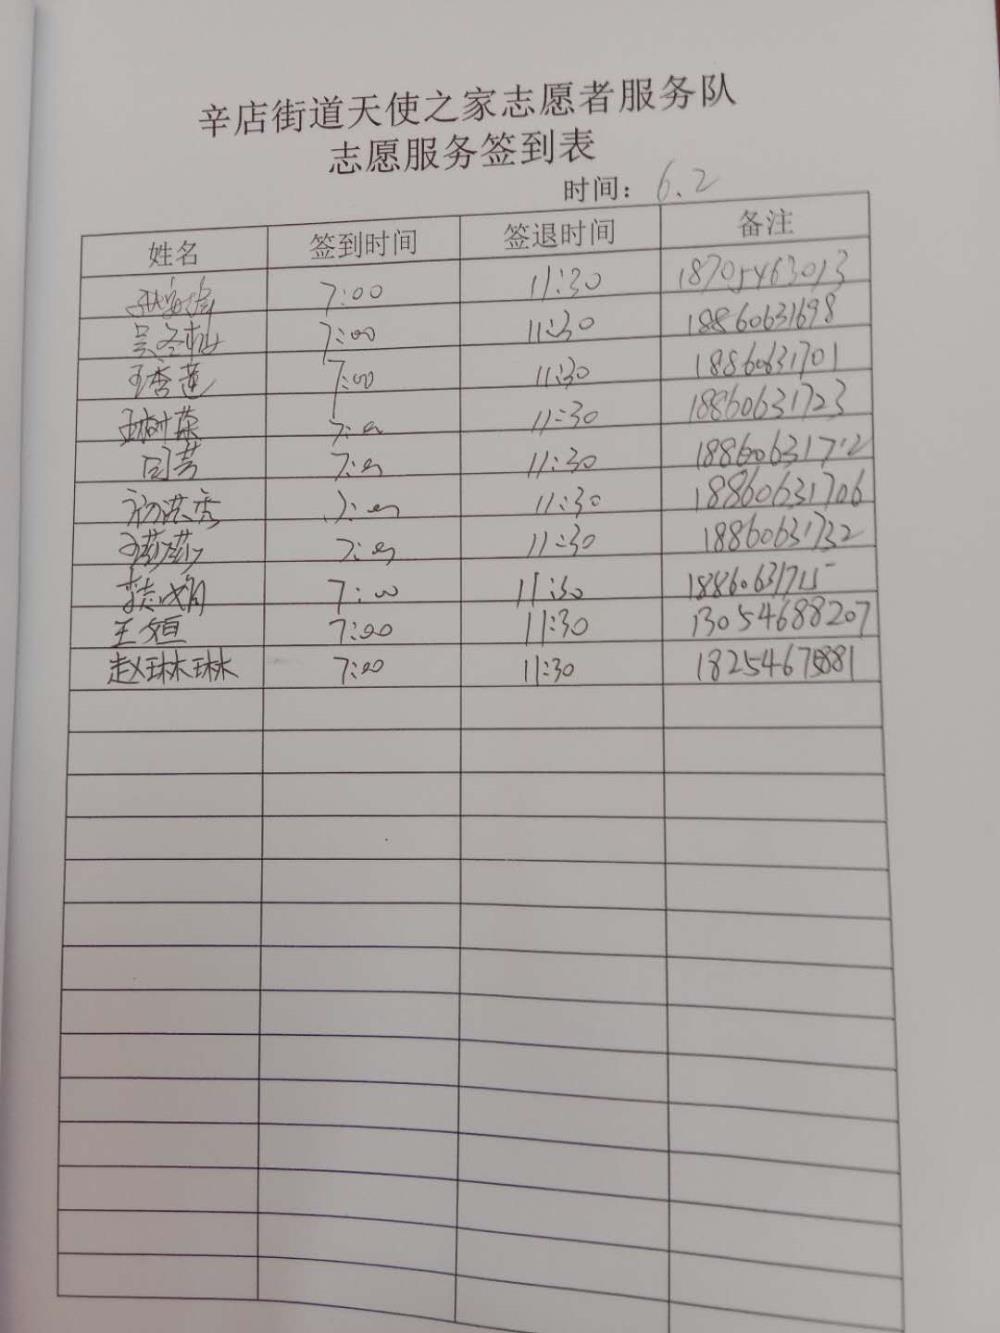 辛店街道天使之家志愿者服务队
志愿服务签到表
时间：6.2
姓名 签到时间 签退时间 备注
7:00 11:30 18705463013
吴冬梅 7:00 11:30 18860631698
王秀莲 7:00 11:30 18860631701
王树荣 7:00 11:30 18860631723
闫芳 7:00 11:30 18860631712
杨洪秀 7:00 11:30 18860631706
王莎莎 7:00 11:30 18860631732
7:00 11:30 18860631715
王烜 7:00 11:30 13054688207
赵琳琳 7:00 11:30